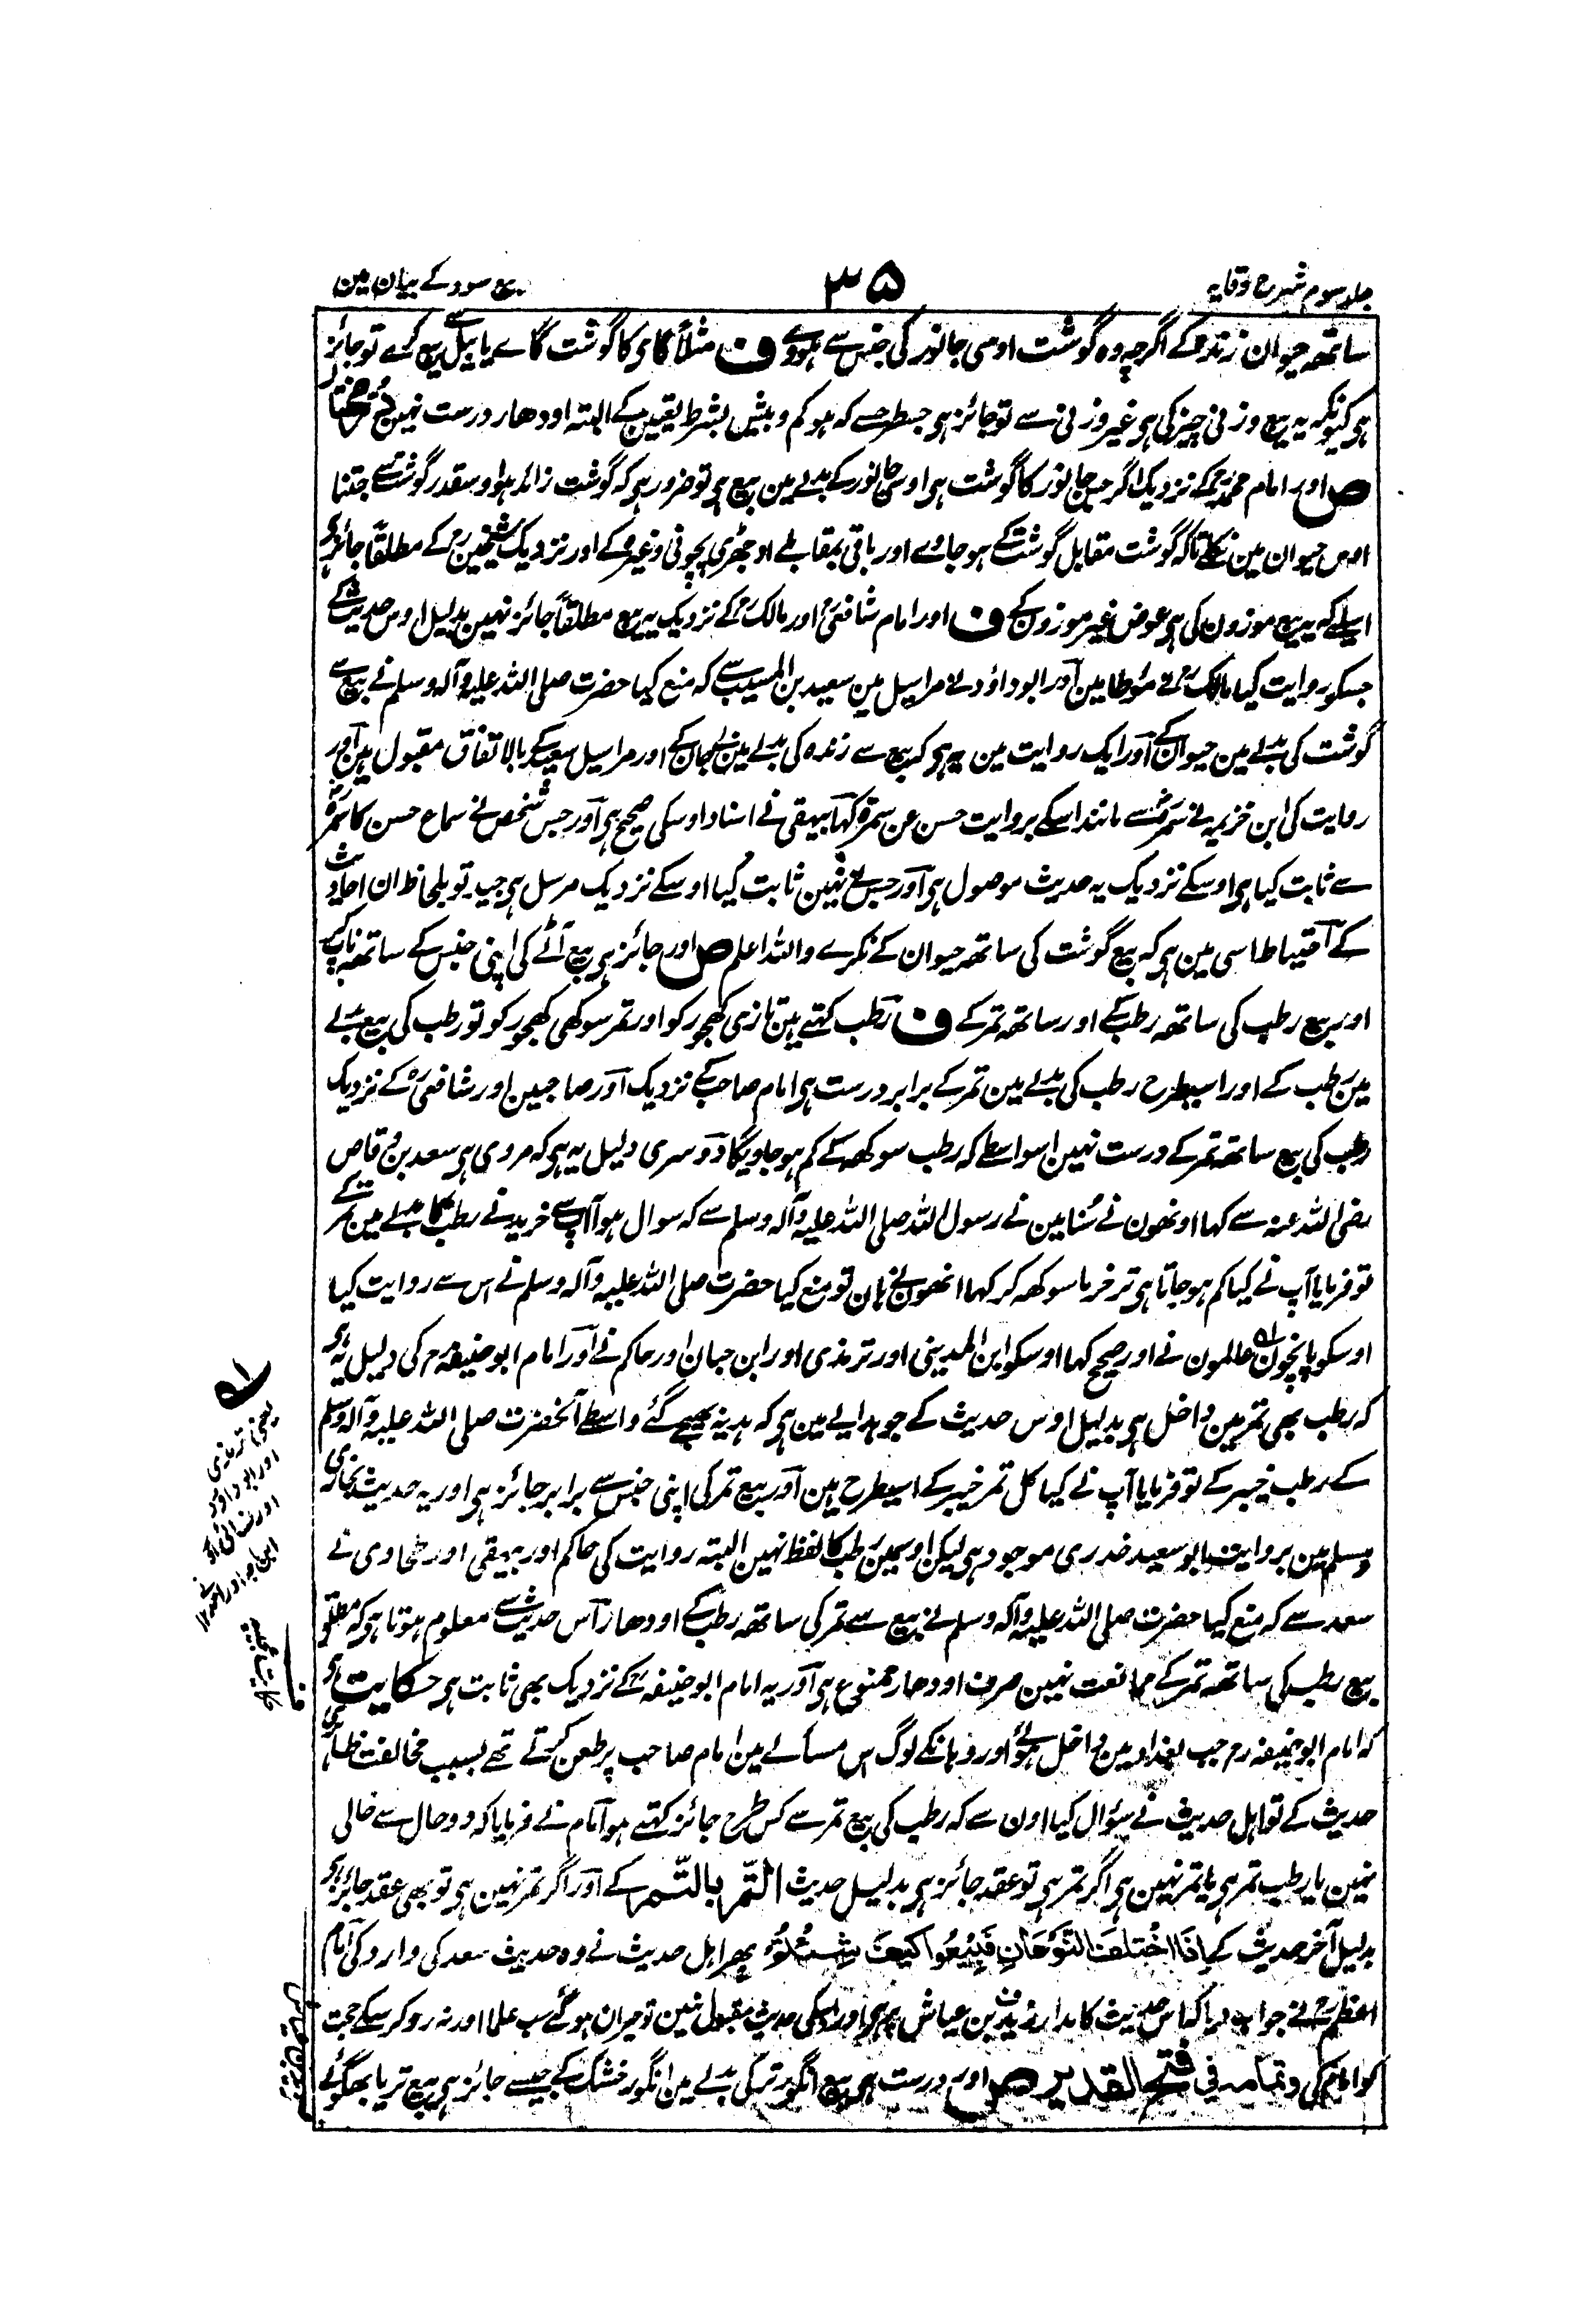 جلد سوم شرح وقایہ
۳۵
بیع سود کے بیان مین
ساتھ حیوان زندہ کے اگرچہ وہ گوشت اوسی جانور کی جنس سے ہووے ف مثلاً گاے کا گوشت گاے یا بیل سے بیع کرے تو جائز
ہی کیونکہ یہ بیع وزنی چیز کی ہی غیر وزنی سے تو جائز ہی جسطرح سے کہ ہو کم و بیش بشرط تعیین کے البتہ اودھار درست نہین
ص اور امام محمدؒ کے نزدیک اگر جس جانور کا گوشت ہی اوسی جانور کے بدلے مین بیع ہی تو ضرور ہی کہ گوشت زائد ہو اوسقدر گوشت سے جتنا
اوس حیوان مین نکلے تاکہ گوشت مقابل گوشت کے ہو جاوے اور باقی بمقابلے اوجھڑی پچونی وغیرہ کے اور نزدیک شیخین رح کے مطلقاً جائز ہی
اسلیے کہ یہ بیع موزون کی ہی عوض غیر موزون کے ف اور امام شافعیؒ اور مالکؒ کے نزدیک یہ بیع مطلقاً جائز نہین بدلیل اوس حدیث کے
جسکو روایت کیا مالکؒ نے موطا مین اور ابو داؤد نے مراسیل مین سعید بن المسیب سے کہ منع کیا حضرت صلی اللہ علیہ وآلہ وسلم نے بیع سے
گوشت کی بدلے مین حیوان کے اور ایک روایت مین یہ ہی کہ بیع سے زندہ کی بدلے مین بے جان کے اور مراسیل سعید کے بالاتفاق مقبول ہین اور
روایت کی ابن خزیمہ نے سمرہؓ سے مانند اسکے بروایت حسن عن سمرہ کہا بیہقی نے اسناد اوسکی صحیح ہی اور جس شخص نے سماع حسن کا سمرہؓ
سے ثابت کیا ہی اوسکے نزدیک یہ حدیث موصول ہی اور جس نے نہین ثابت کیا اوسکے نزدیک مرسل ہی جید تو بلحاظ ان احادیث
کے احتیاط اسی مین ہی کہ بیع گوشت کی ساتھ حیوان کے نکرے واللہ اعلم ص اور جائز ہی بیع آٹے کی اپنی جنس کے ساتھ ناپ کے
اور بیع رطب کی ساتھ رطب کے اور ساتھ تمر کے ف رطب کہتے ہین تازی کھجور کو اور تمر سوکھی کھجور کو تو رطب کی بیع بدلے
مین رطب کے اور اسیطرح رطب کی بدلے مین تمر کے برابر درست ہی امام صاحب کے نزدیک اور صاحبین اور شافعیؒ کے نزدیک
رطب کی بیع ساتھ تمر کے درست نہین اسواسطے کہ رطب سوکھ کے کم ہو جاویگا دوسری دلیل یہ ہی کہ مروی ہی سعد بن وقاص
رضی اللہ عنہ سے کہا اونھون نے سُنا مین نے رسول اللہ صلی اللہ علیہ وآلہ وسلم سے کہ سوال ہوا آپ سے خریدنے رطب کا بدلے مین تمر کے
تو فرمایا آپ نے کیا کم ہو جاتا ہی تر خرما سوکھ کر کہا انھون نے ہان تو منع کیا حضرت صلی اللہ علیہ وآلہ وسلم نے اس سے روایت کیا
اوسکو پانچون عالمون نے اور صحیح کہا اوسکو ابن المدینی اور ترمذی اور ابن حبان اور حاکم نے اور امام ابو حنیفہ رح کی دلیل یہ ہی
کہ رطب بھی تمر مین داخل ہی بدلیل اوس حدیث کے جو ہدایے مین ہی کہ ہدیہ بھیجے گئے واسطے آنحضرت صلی اللہ علیہ وآلہ وسلم
کے رطب خیبر کے تو فرمایا آپ نے کیا کل تمر خیبر کے اسیطرح ہین اور بیع تمر کی اپنی جنس سے برابر جائز ہی اور یہ حدیث بخاری
و مسلم مین بروایت ابو سعید خدری موجود ہی لیکن اوسمین رطب کا لفظ نہین البتہ روایت کی حاکم اور بیہقی اور طحاوی نے
سعد سے کہ منع کیا حضرت صلی اللہ علیہ وآلہ وسلم نے بیع سے تمر کی ساتھ رطب کے اودھار اس حدیث سے معلوم ہوتا ہی کہ مطلق
بیع رطب کی ساتھ تمر کے ممانعت نہین صرف اودھار ممنوع ہی اور یہ امام ابو حنیفہؒ کے نزدیک بھی ثابت ہی حکایت ہی
کہ امام ابو حنیفہ رح جب بغداد مین داخل ہوئے اور وہانکے لوگ اس مسألے مین امام صاحب پر طعن کرتے تھے بسبب مخالفت ظاہری
حدیث کے تو اہل حدیث نے سوال کیا اون سے کہ رطب کی بیع تمر سے کس طرح جائز کہتے ہو امام نے فرمایا کہ دو حال سے خالی
نہین یا رطب تمر ہی یا تمر نہین ہی اگر تمر ہی تو عقد جائز ہی بدلیل حدیث التمر بالتمر کے اور اگر تمر نہین ہی تو بھی عقد جائز ہی
بدلیل آخر حدیث کے اِذَا اخْتَلَفَ النَّوْعَانِ فَبِیْعُوا کَیْفَ شِئْتُمْ پھر اہل حدیث نے وہ حدیث سعد کی وارد کی امام
اعظمؒ نے جواب دیا کہ اس حدیث کا مدار زید بن عیاش پر ہی اور اسکی حدیث مقبول نہین تو حیران ہو گئے سب علما اور نہ رد کر سکے حجت
کو امام کی وتمامہ فی فتح القدیر ص اور درست ہی بیع انگور تر کی بدلے مین انگور خشک کے جیسے جائز ہی بیع تر یا بھگوئے
یعنی ترمذی
اور ابو داود
اور نسائی اور
ابن ماجہ اور احمد ۱۲
حکایت عجیبہ